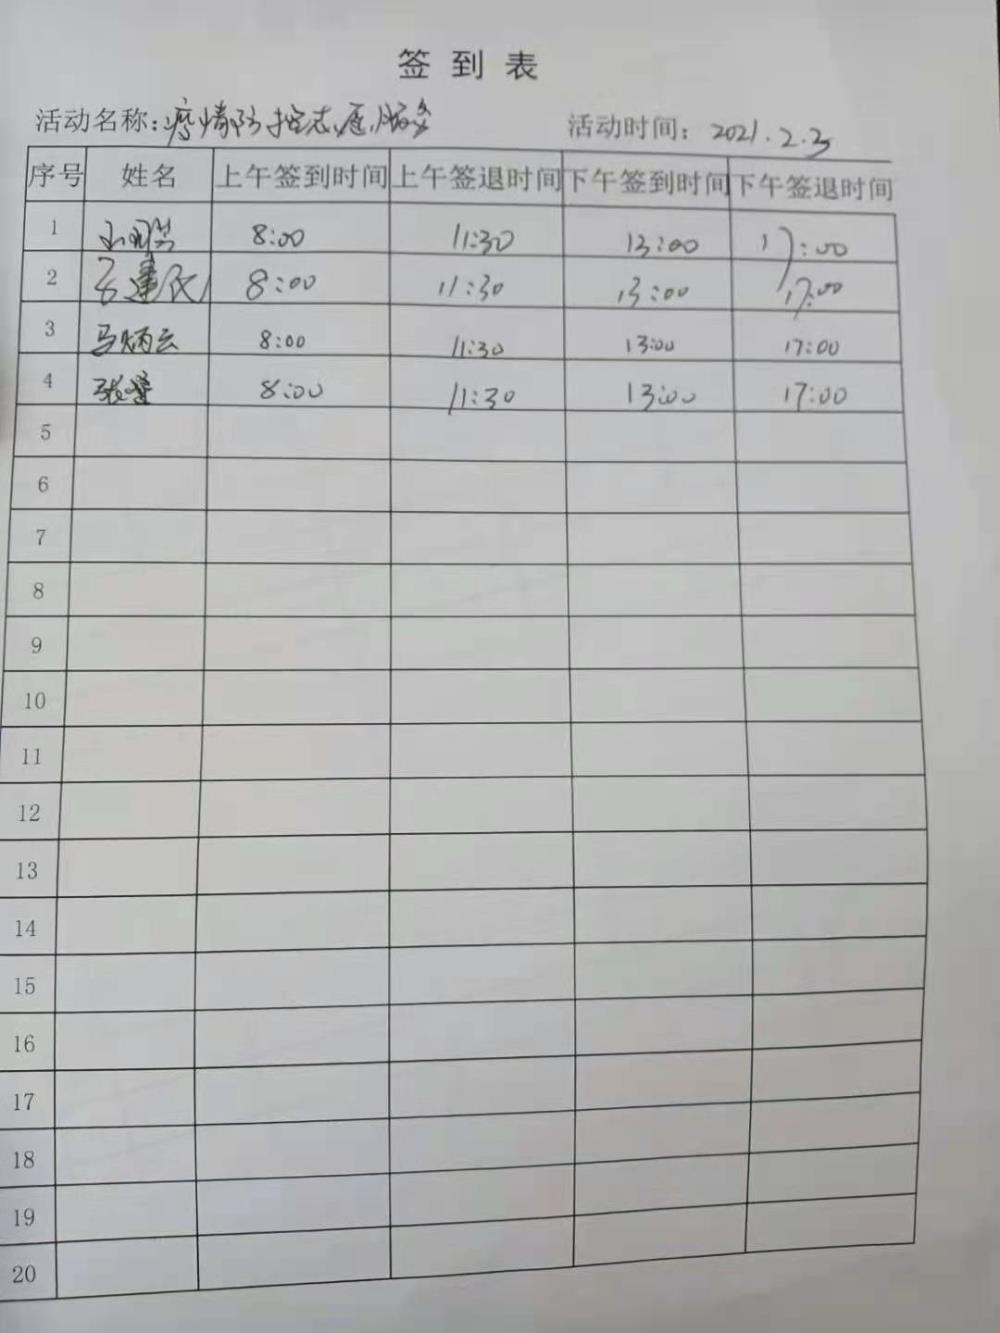 签到表
活动名称:疫情防控志愿服务 活动时间: 2021.2.3
序号 姓名 上午签到时间 上午签退时间 下午签到时间 下午签退时间
1 8:00 11:30 13:00 17:00
2 8:00 11:30 13:00 17:00
3 马炳云 8:00 11:30 13:00 17:00
4 8:00 11:30 13:00 17:00
5
6
7
8
9
10
11
12
13
14
15
16
17
18
19
20